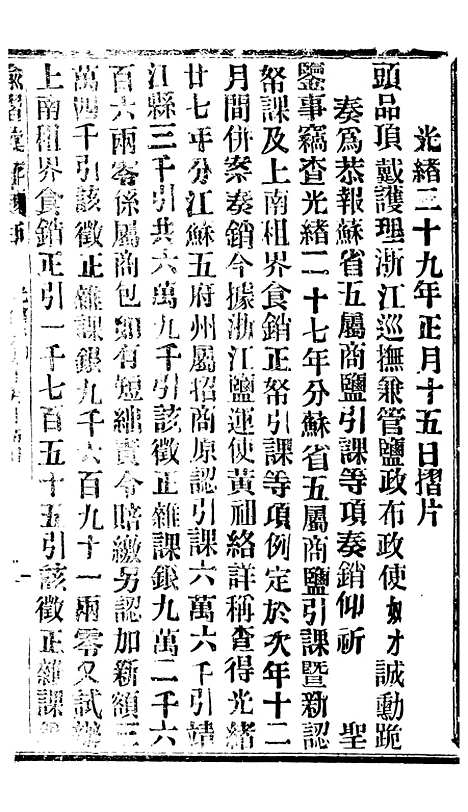 光緒二十九年正月十五日摺片
頭品頂戴護理浙江巡撫兼管鹽政布政使奴才誠勳跪
奏爲恭報蘇省五屬商鹽引課等項奏銷仰祈 聖
鑒事竊查光緒二十七年分蘇省五屬商鹽引課暨新認
帑課及上南租界食銷正帑引課等項例定於次年十二
月間併案奏銷今據浙江鹽運使黃祖絡詳稱查得光緒
廿七年分江蘇五府州屬招商原認引課六萬六千引靖
江縣三千引共六萬九千引該徵正雜課銀九萬二千六
百六兩零係屬商包如有短絀責令賠繳另認加新額三
萬四千引該徵正雜課銀九千六百九十一兩零又試辦
上南租界食銷正引一千七百五十五引該徵正雜課